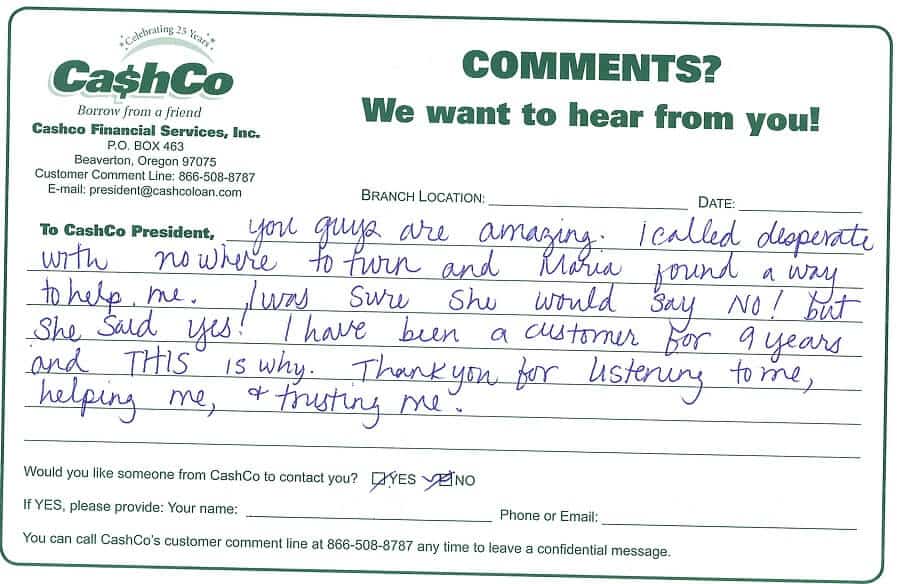 Celebrating 25 Years
Ca$hCo
Borrow from a friend
Cashco Financial Services, Inc.
P.O. BOX 463
Beaverton, Oregon 97075
Customer Comment Line: 866-508-8787
E-mail: president@cashcoloan.com
COMMENTS?
We want to hear from you!
BRANCH LOCATION: DATE:
To CashCo President, you guys are amazing. I called desperate
with nowhere to turn and Maria found a way
to help me. I was sure she would say NO! but
she said yes! I have been a customer for 9 years
and THIS is why. Thank you for listening to me,
helping me, & trusting me.
Would you like someone from CashCo to contact you? YES NO
If YES, please provide: Your name: Phone or Email:
You can call CashCo's customer comment line at 866-508-8787 any time to leave a confidential message.